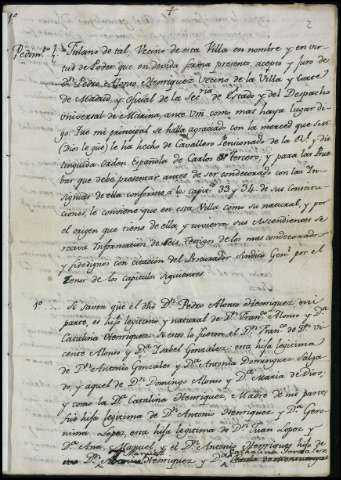 1º
5
Pedimto. Fulano de tal, Vecino de esta Villa en nombre y en vir-
tud de Poder que en devida forma presento, acepto y juro de
Dn. Pedro Alonso Henriquez Vecino de la Villa y Corte
de Madrid, y oficial de la Secria. de Estado y del Despacho
Universal de Marina, ante Vm como mas haya lugar di-
go: Que mi principal se halla agraciado con la merced que S.M.
(Dios le gue) le ha hecho de Cavallero Pensionado de la Rl. y Dis-
tinguida orden Española de Carlos tercero, y para las Prue-
bas que debe presentar antes de ser condecorado con las In-
signias de ella conforme a los capitos. 33 y 34 de sus Constitu-
ciones, le conviene que en esta Villa como su natural, y por
el origen que tiene de ella y tuvieron sus Ascendientes se
reciva Informacion de seis testigos de los mas condecorados
y fidedignos con citacion del Procurador Sindico Genl. por el
tenor de los capitulos siguientes
1º Si saven que el dho Dn. Pedro Alonso Henriquez, mi
parte, es hijo legitimo y natural de Dn. Alonso y Da.
Catalina Henriquez: Si este lo fue de Dn. Franco. Vi-
cente Alonso y Da. Isabel Gonzalez; esta hija legitima
de Dn. Antonio Gonzalez y Da. Antonia Dominguez Salga-
do, y aquel de Dn. Domingo Alonso y Da. Maria de Dios;
y como la Da. Catalina Henriquez, Madre de mi parte,
fue hija legitima de Dn. Antonio Henriquez y Da. Gero-
nima Lopez, esta hija legitima de Dn. Juan Lopez y
Da. Ana Manuel, y el Dn. Antonio Henriquez hijo de
Dn. Henriquez y Da.